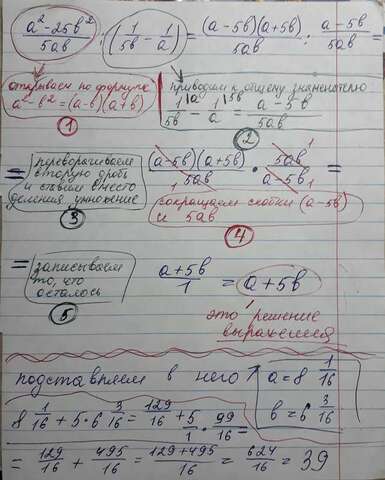 (a² - 25b²)/5ab : (1/5b - 1/a) = ((a-5b)(a+5b))/5ab : (a-5b)/5ab =
открываем по формуле
a² - b² = (a-b)(a+b)
1
приводим к общему знаменателю
1/5b \a - 1/a \5b = (a-5b)/5ab
2
= переворачиваем
вторую дробь
и ставим вместо
деления умножение
3
((a-5b)(a+5b))/5ab · 5ab/(a-5b) =
сокращаем скобки (a-5b)
и 5ab
4
= записываем
то, что
осталось
5
(a+5b)/1 = a+5b
это решение
выражения
подставляем в него
a = 8 1/16
b = 6 3/16
8 1/16 + 5·6 3/16 = 129/16 + 5/1 · 99/16 =
= 129/16 + 495/16 = (129+495)/16 = 624/16 = 39